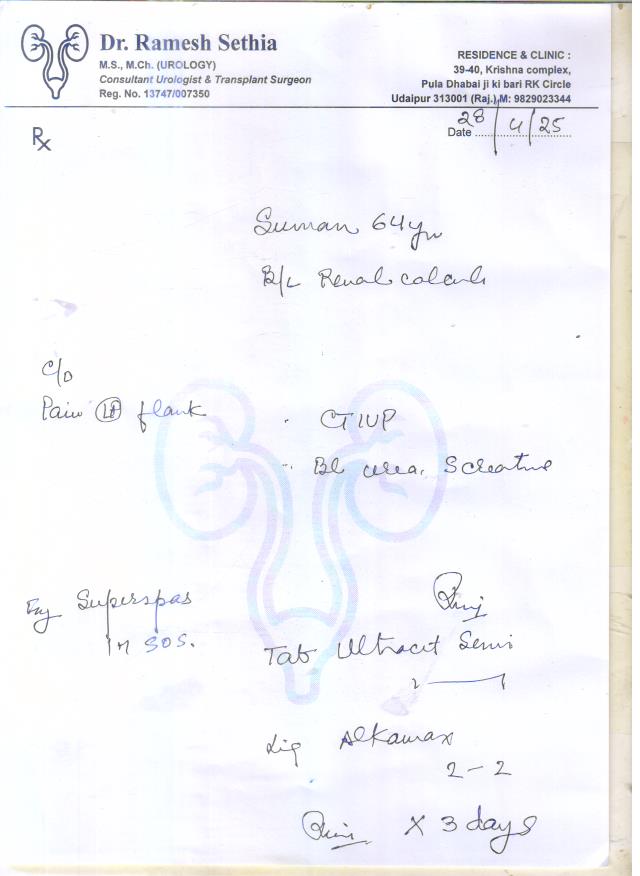 Dr. Ramesh Sethia
M.S., M.Ch. (UROLOGY)
Consultant Urologist & Transplant Surgeon
Reg. No. 13747/007350
RESIDENCE & CLINIC :
39-40, Krishna complex,
Pula Dhabai ji ki bari RK Circle
Udaipur 313001 (Raj.) M: 9829023344
Rx
Date 28/4/25
Suman 64yr
B/L Renal calculi
C/O
Pain flank
CT IVP
Bl urea, S creatine
Inj Superspas
IM SOS.
Tab Ultracet Semi
1 — 1
Liq Alkamax
2 - 2
X 3 days